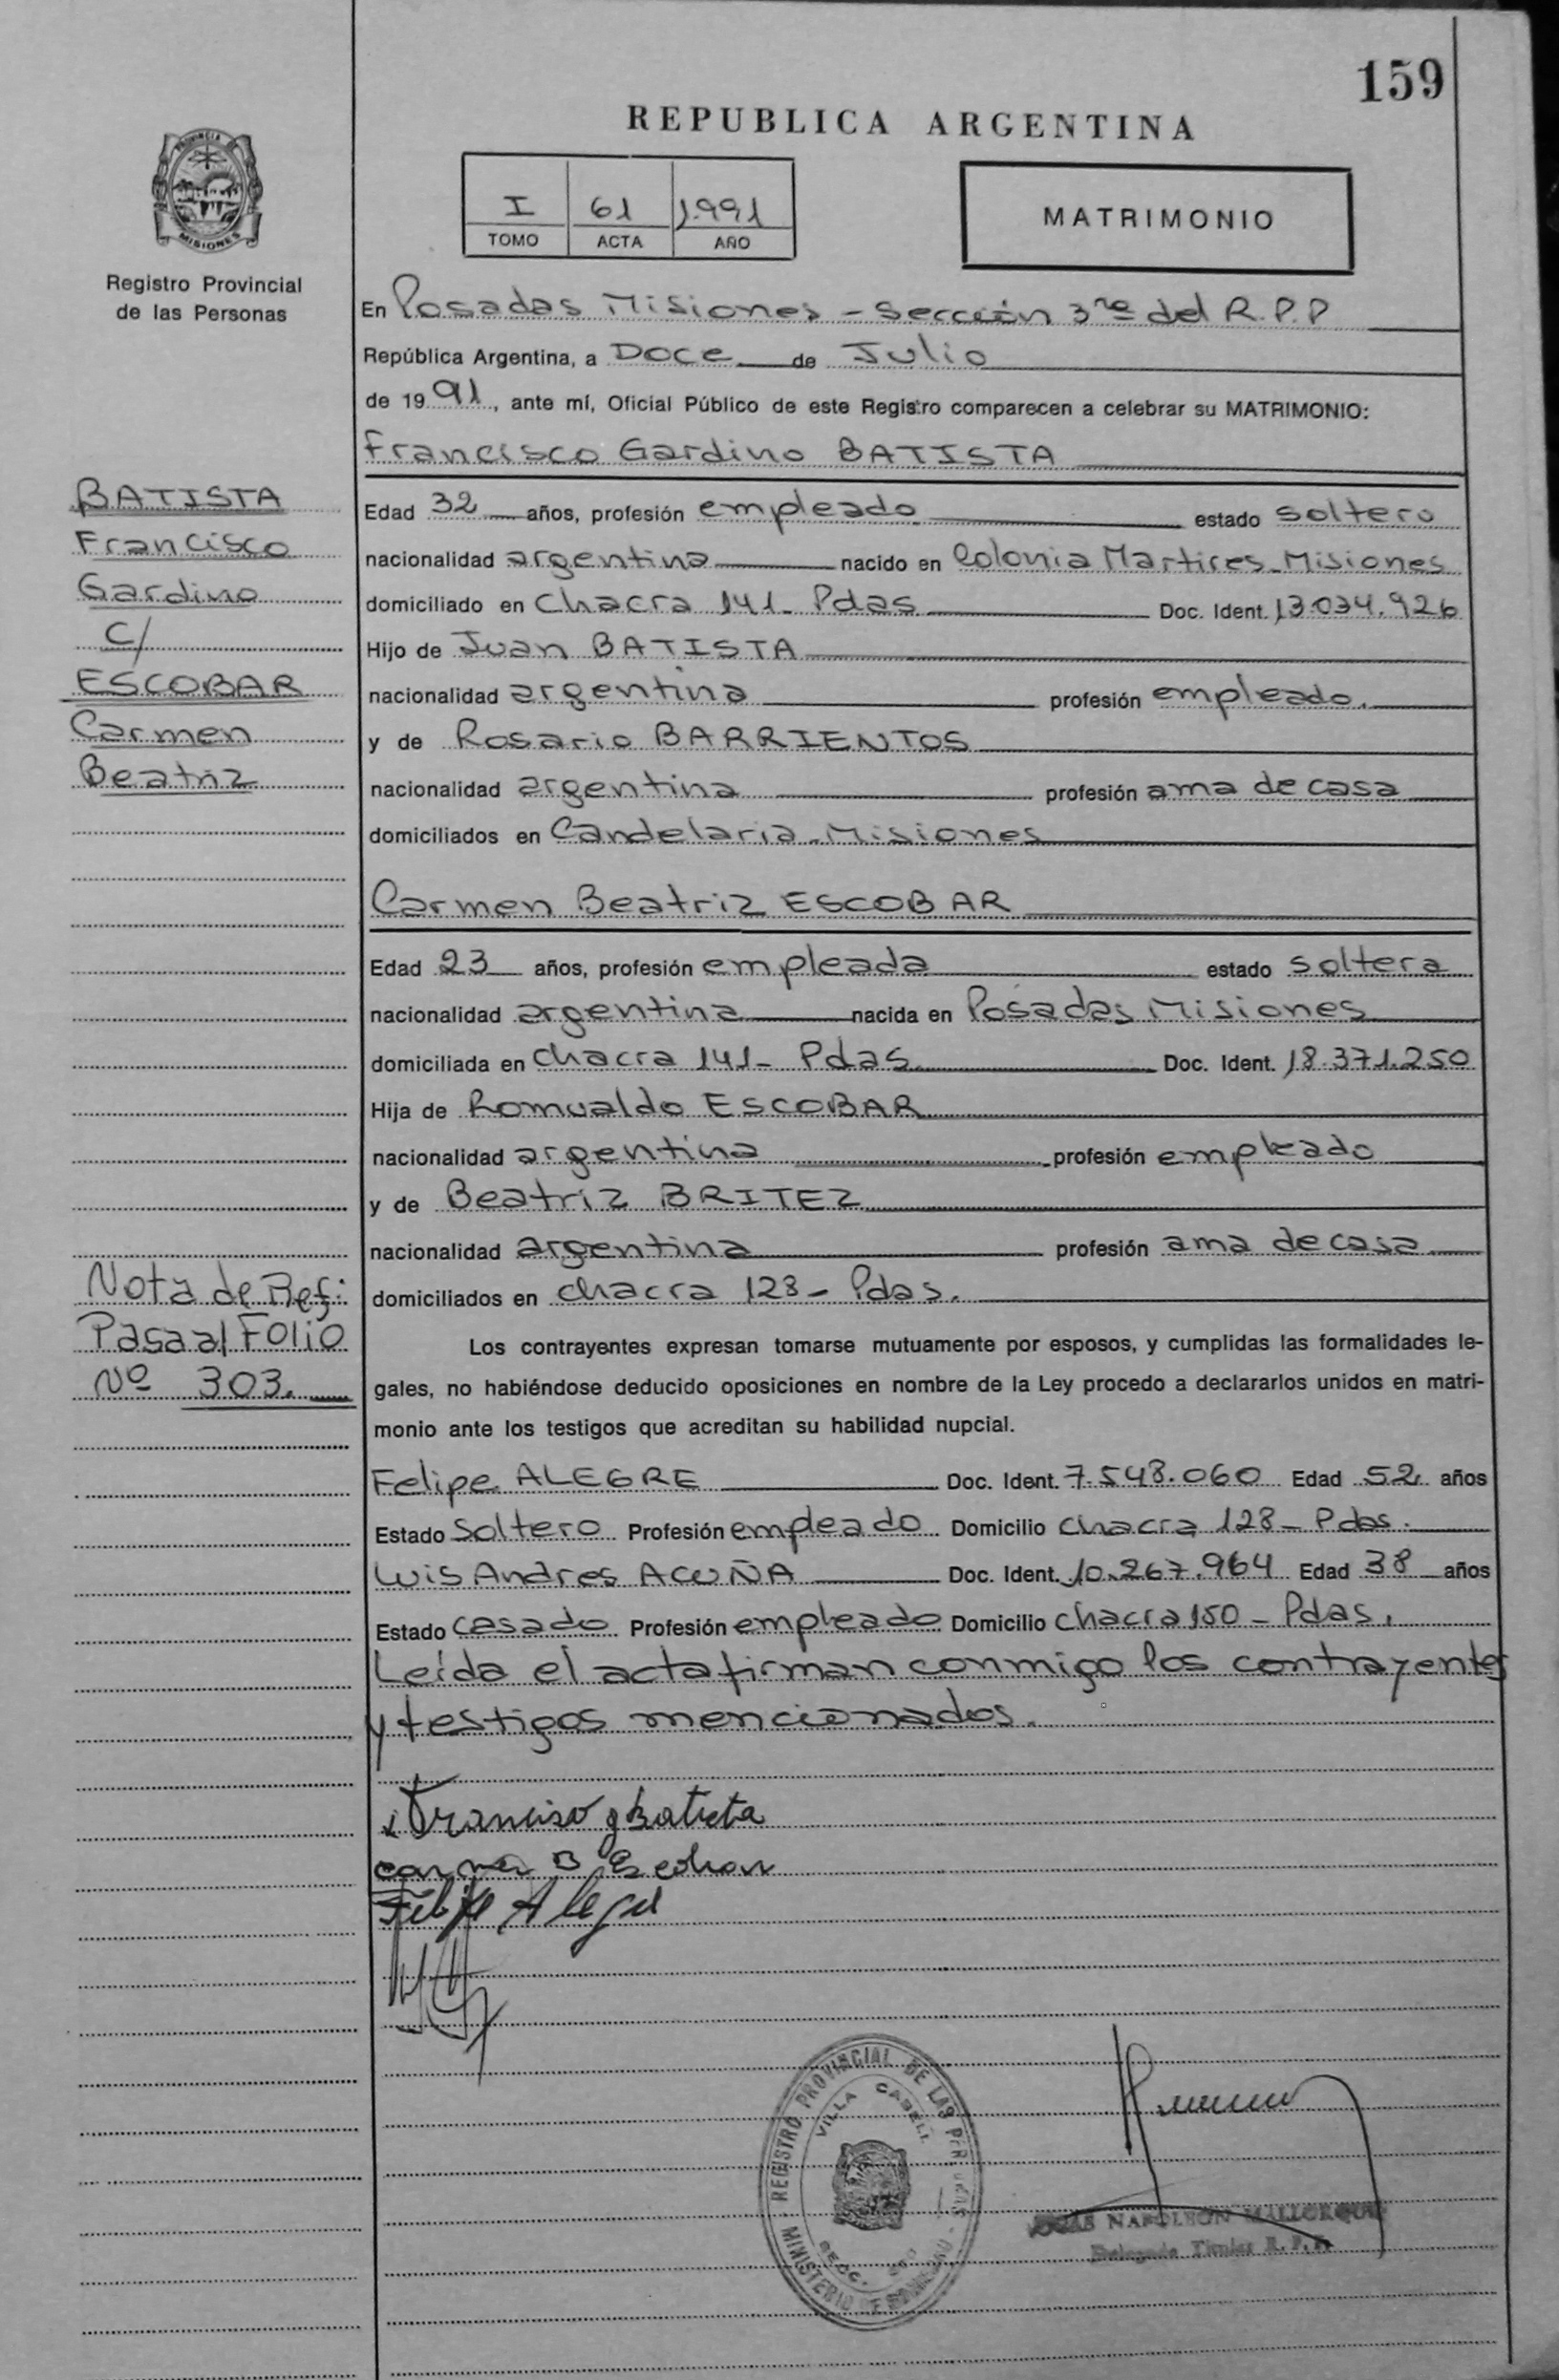 159
REPUBLICA ARGENTINA
PROVINCIA DE
MISIONES
Registro Provincial
de las Personas
I 61 1.991
TOMO ACTA AÑO
MATRIMONIO
En Posadas Misiones - Sección 3ra del R.P.P
República Argentina, a Doce de Julio
de 1991, ante mí, Oficial Público de este Registro comparecen a celebrar su MATRIMONIO:
Francisco Gardino BATISTA
BATISTA
Francisco
Gardino
C/
ESCOBAR
Carmen
Beatriz
Edad 32 años, profesión empleado estado soltero
nacionalidad argentina nacido en Colonia Martires - Misiones
domiciliado en chacra 141 - Pdas Doc. Ident. 13.034.926
Hijo de Juan BATISTA
nacionalidad argentina profesión empleado.
y de Rosario BARRIENTOS
nacionalidad argentina profesión ama de casa
domiciliados en Candelaria - Misiones
Carmen Beatriz ESCOBAR
Edad 23 años, profesión empleada estado soltera
nacionalidad argentina nacida en Posadas Misiones
domiciliada en chacra 141 - Pdas. Doc. Ident. 18.371.250
Hija de Romualdo ESCOBAR
nacionalidad argentina profesión empleado
y de Beatriz BRITEZ
nacionalidad argentina profesión ama de casa
domiciliados en chacra 128 - Pdas.
Nota de Ref:
Pasa al Folio
Nº 303.
Los contrayentes expresan tomarse mutuamente por esposos, y cumplidas las formalidades le-
gales, no habiéndose deducido oposiciones en nombre de la Ley procedo a declararlos unidos en matri-
monio ante los testigos que acreditan su habilidad nupcial.
Felipe ALEGRE Doc. Ident. 7.548.060 Edad 52 años
Estado Soltero Profesión empleado Domicilio chacra 128 - Pdas.
Luis Andres ACUÑA Doc. Ident. 10.267.964 Edad 38 años
Estado casado Profesión empleado Domicilio chacra 150 - Pdas.
Leída el acta firman conmigo los contrayentes
y testigos mencionados.
Francisco g Batista
Carmen B Escobar
Felipe Alegre
REGISTRO PROVINCIAL DE LAS
VILLA CABELL
SECC.
MINISTERIO DE
NAPOLEON MALLORQUIN
Delegado Titular R. P. P.